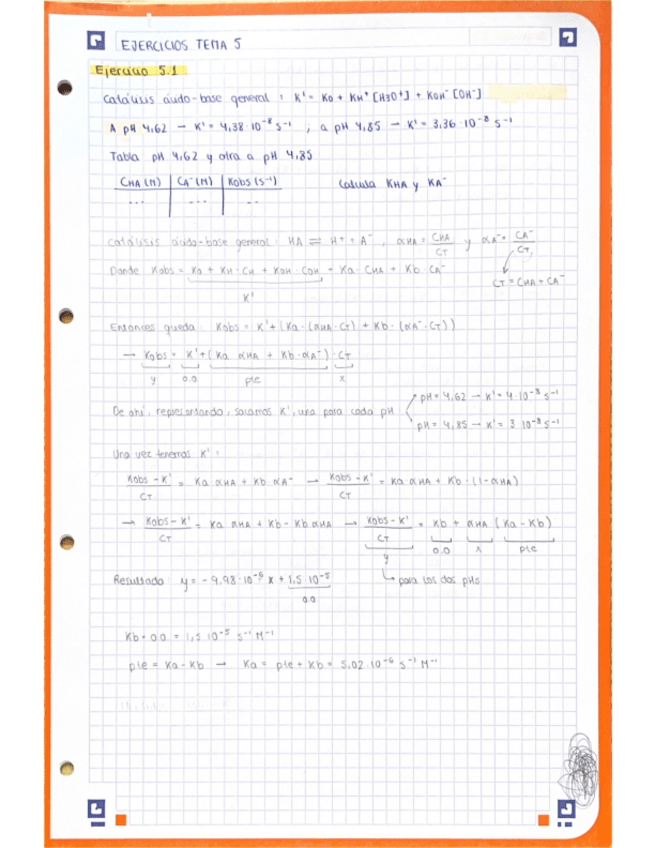 EJERCICIOS TEMA 5
Ejercicio 5.1
Catálisis ácido-base general : K' = K0 + KH+ [H3O+] + KOH- [OH-]
A pH 4,62 → K' = 4,38·10⁻⁸ s⁻¹ , a pH 4,85 → K' = 3,36·10⁻⁸ s⁻¹
Tabla pH 4,62 y otra a pH 4,85
CHA (M) | CA⁻ (M) | Kobs (s⁻¹)
... | ... | ...
Calcula KHA y KA⁻
Catálisis ácido-base general: HA ⇌ H⁺ + A⁻ , αHA = CHA/CT y αA⁻ = CA⁻/CT
CT = CHA + CA⁻
Donde Kobs = K0 + KH·CH + KOH·COH + Ka·CHA + Kb·CA⁻
K'
Entonces queda: Kobs = K' + (Ka·(αHA·CT) + Kb·(αA⁻·CT))
→ Kobs = K' + (Ka αHA + Kb·αA⁻)·CT
y 0.0 pte x
De ahí, representando, sacamos K', una para cada pH
pH = 4,62 → K' = 4·10⁻⁸ s⁻¹
pH = 4,85 → K' = 3 10⁻⁸ s⁻¹
Una vez tenemos K' :
Kobs - K'/CT = Ka αHA + Kb αA⁻ → Kobs - K'/CT = Ka αHA + Kb·(1-αHA)
→ Kobs - K'/CT = Ka αHA + Kb - Kb αHA → Kobs - K'/CT = Kb + αHA (Ka - Kb)
y 0.0 x pte
para los dos pHs
Resultado: y = -9,98·10⁻⁶ x + 1,5 10⁻⁵
0.0
Kb = 0.0 = 1,5 10⁻⁵ s⁻¹ M⁻¹
pte = Ka - Kb → Ka = pte + Kb = 5,02·10⁻⁶ s⁻¹ M⁻¹